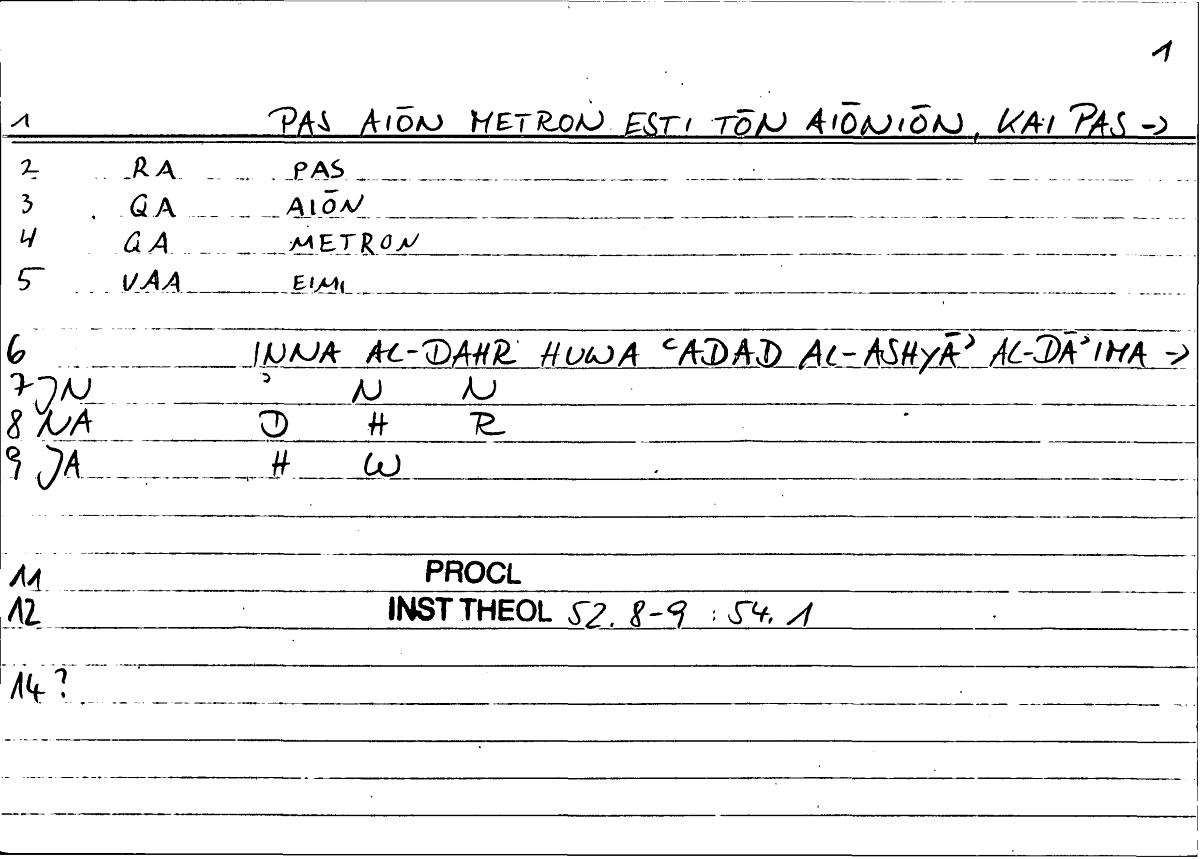 1
1 PAS AIŌN METRON ESTI TŌN AIŌNIŌN, KAI PAS ->
2 RA PAS
3 QA AIŌN
4 QA METRON
5 VAA EIMI
6 INNA AL-DAHR HUWA ʿADAD AL-ASHYĀʾ AL-DĀʾIMA ->
7 JN ʾ N N
8 NA D H R
9 JA H W
11 PROCL
12 INST THEOL 52. 8-9 : 54. 1
14 ?